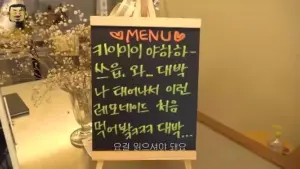 MENU
키이이이 야하하~
쓰읍. 와... 대박
나 태어나서 이런
레모네이드 처음
먹어봤ㅋㅋㅋ 대박...
요걸 읽으셔야 돼요